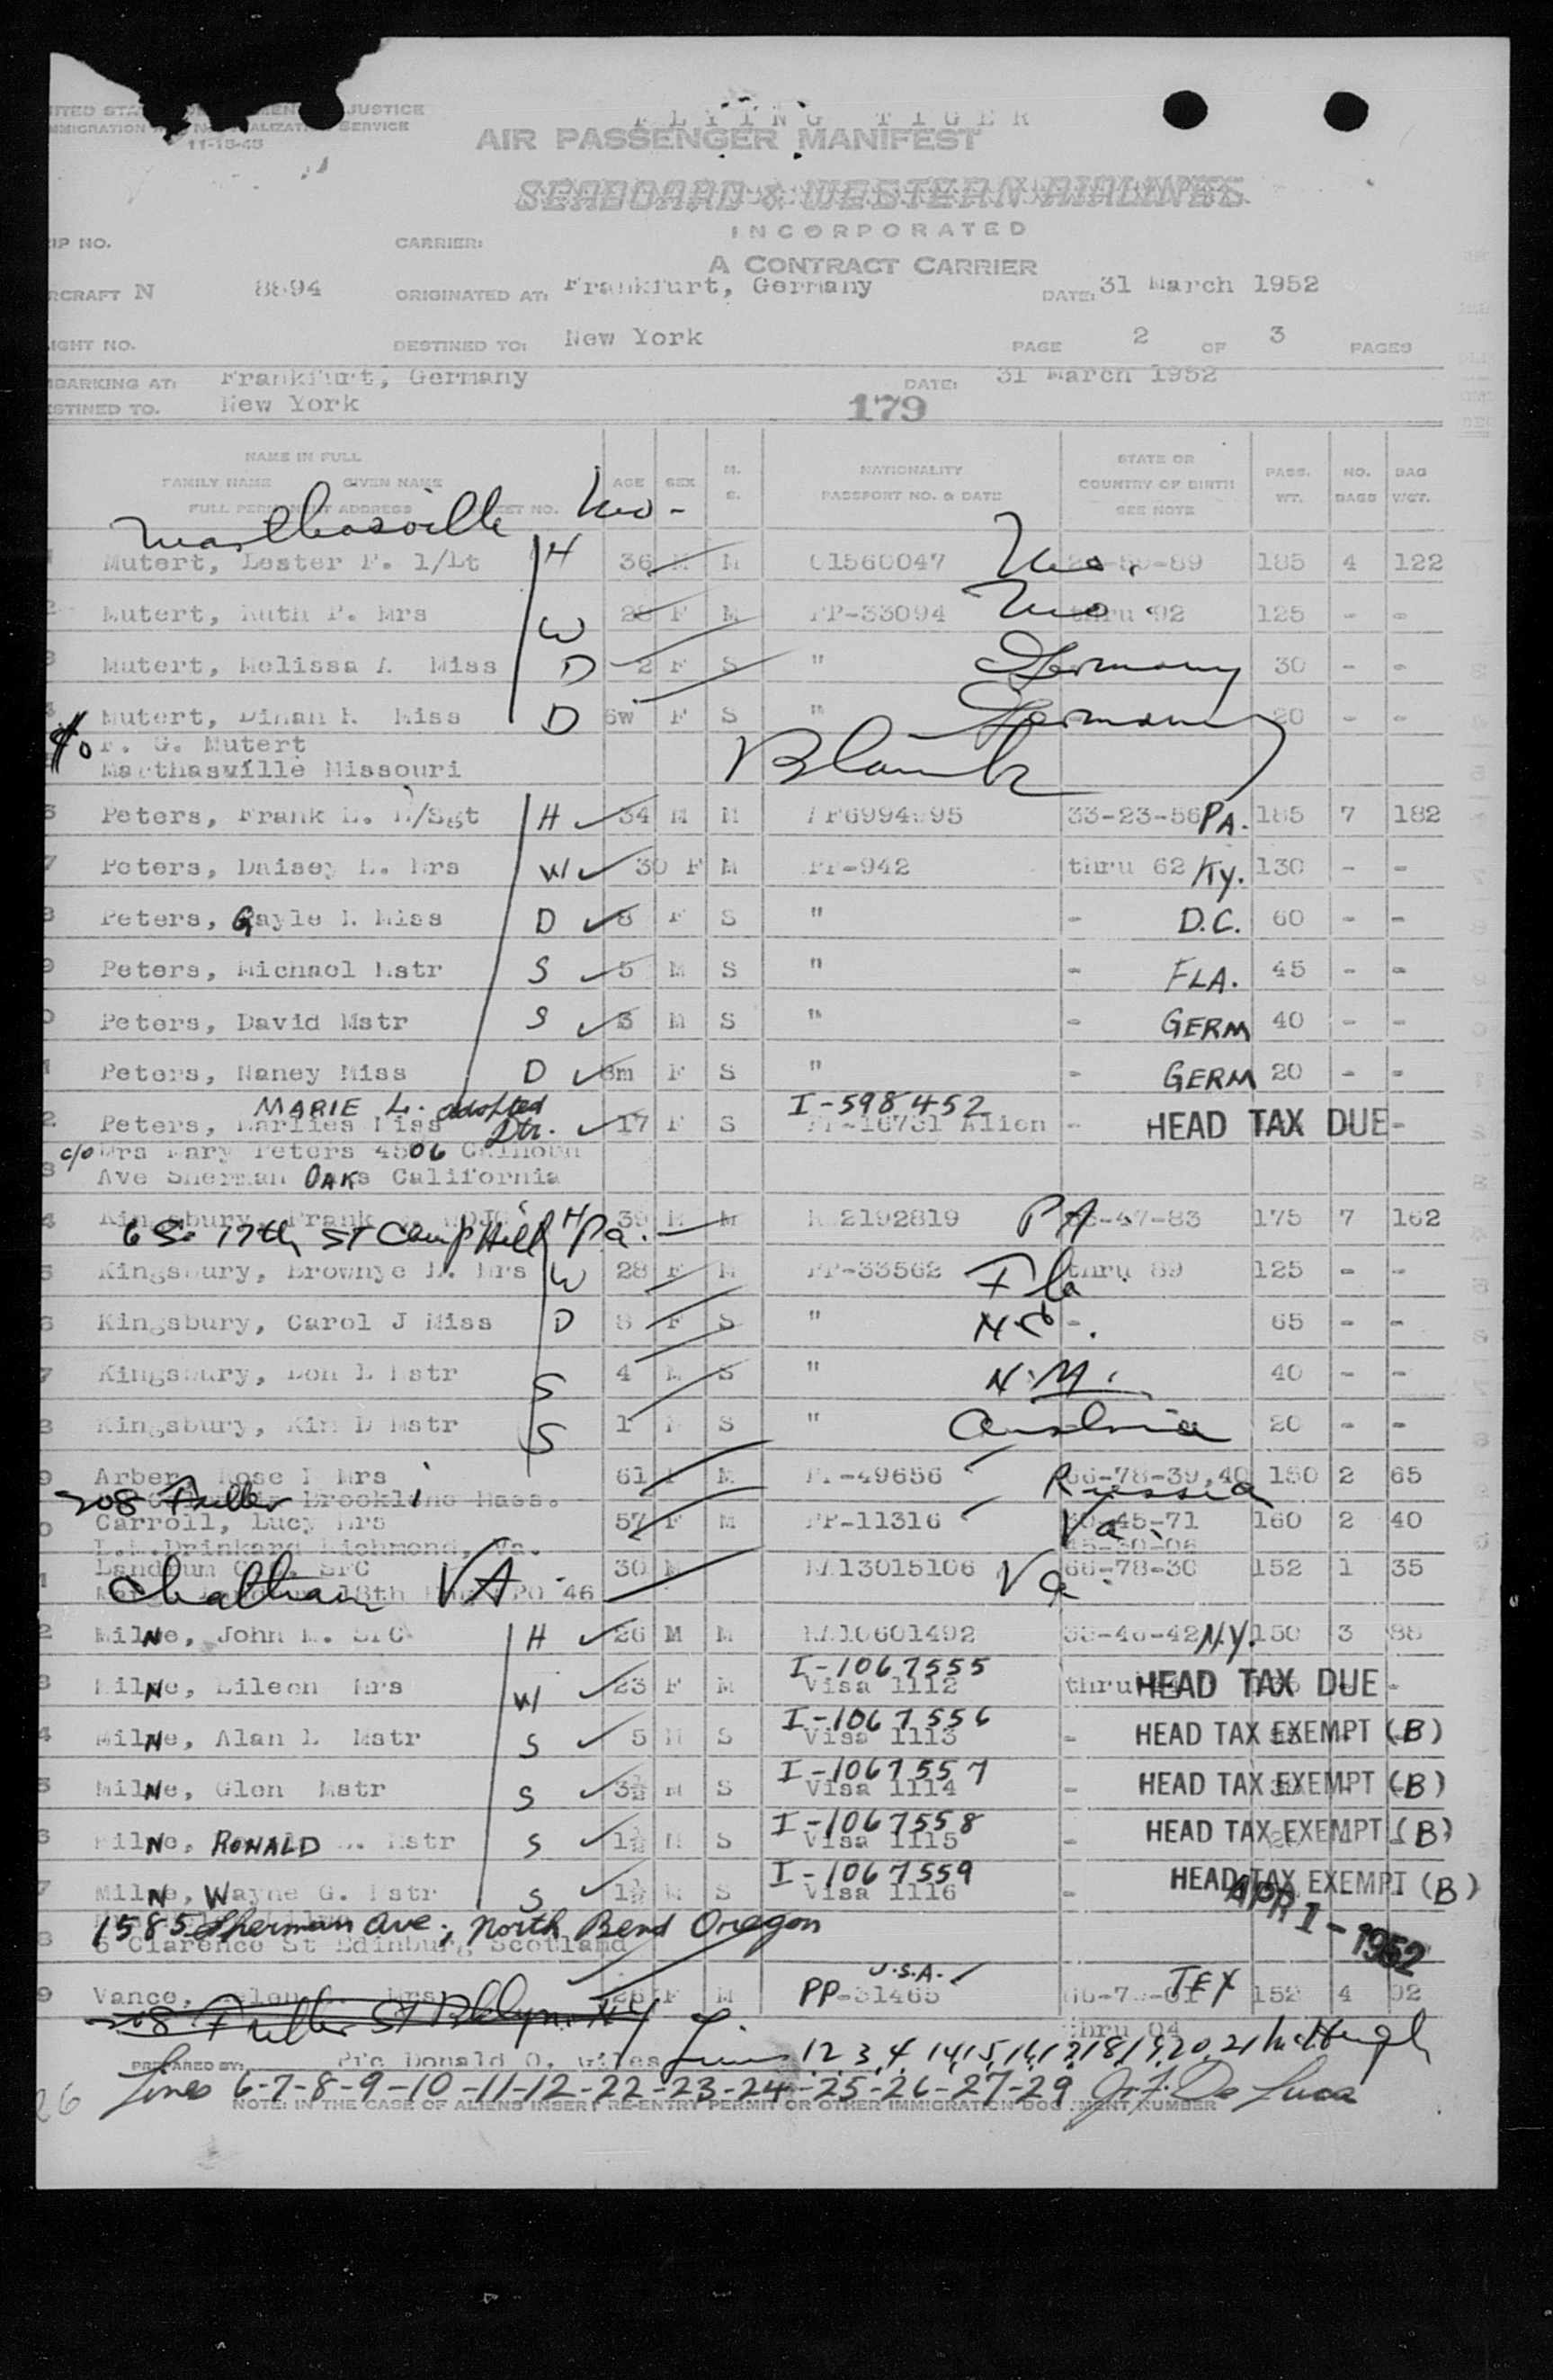 JUSTICE
SERVICE
11-15-48
FLYING TIGER
AIR PASSENGER MANIFEST
SEABOARD & WESTERN AIRLINES
INCORPORATED
A CONTRACT CARRIER
IP NO. CARRIER:
RCRAFT N 8894 ORIGINATED AT: Frankfurt, Germany DATE: 31 March 1952
IGHT NO. DESTINED TO: New York PAGE 2 OF 3 PAGES
BARKING AT: Frankfurt, Germany DATE: 31 March 1952
STINED TO. New York 179
NAME IN FULL M. NATIONALITY STATE OR PASS. NO. BAG
FAMILY NAME GIVEN NAME AGE SEX S. PASSPORT NO. & DATE COUNTRY OF BIRTH WT. BAGS WGT.
FULL ADDRESS SEE NOTE
Marthasville Mo-
Mutert, Lester F. 1/Lt H 36 M M 01560047 Mo. 185 4 122
Mutert, Ruth P. Mrs W 28 F M PP-33094 Mo. thru 92 125 - -
Mutert, Melissa A Miss D 2 F S " Germany 30 - -
Mutert, Dinah Miss D 6w F S " Germany 20 - -
c/o F. G. Mutert Blank
Marthasville Missouri
Peters, Frank /Sgt H 34 M M 33-23-56 PA. 185 7 182
Peters, Daisey L. Mrs W 30 F M PP-942 thru 62 Ky. 130 - -
Peters, Gayle Miss D 8 F S " - D.C. 60 - -
Peters, Michael Mstr S 5 M S " - FLA. 45 - -
Peters, David Mstr S 3 M S " - GERM 40 - -
Peters, Naney Miss D 3m F S " - GERM 20 - -
MARIE L. adopted I-598452
Peters, Marlies Miss Dtr. 17 F S PP-16731 Alien - HEAD TAX DUE -
c/o Mrs Mary Peters 4506 Calhoun
Ave Sherman OAKs California
Kingsbury, Frank H 39 M M 2192819 PA 175 7 162
6 So 17th ST Camp Hill Pa.
Kingsbury, Brownye Mrs W 28 F M PP-33562 Fla thru 89 125 - -
Kingsbury, Carol J Miss D 8 F S " N.C. - 65 - -
Kingsbury, Don L Mstr S 4 M S " N.M. 40 - -
Kingsbury, Kim D Mstr S 1 M S " Austria 20 - -
Arber Rose Mrs 61 F M PP-49656 66-78-39,40 Russia 150 2 65
208 Fuller Brookline Mass.
Carroll, Lucy Mrs 57 F M PP-11316 Va. 45-71 160 2 40
Drinkard Richmond, Va. 45-30-06
Landrum SFC 30 M RA13015106 Va. 66-78-30 152 1 35
Chatham VA. 18th 46
MilNe, John SFC H 26 M M RA10601492 N.Y. 150 3 88
I-1067555
MilNe, Eileen Mrs W 23 F M Visa 1112 thru HEAD TAX DUE -
I-1067556
MilNe, Alan L Mstr S 5 M S Visa 1113 - HEAD TAX EXEMPT (B)
I-1067557
MilNe, Glen Mstr S 3½ M S Visa 1114 - HEAD TAX EXEMPT (B)
I-1067558
MilNe, RONALD Mstr S 1½ M S Visa 1115 - HEAD TAX EXEMPT (B)
I-1067559
MilNe, Wayne G. Mstr S 1½ M S Visa 1116 - HEAD TAX EXEMPT (B)
APR 1 - 1952
1585 Sherman Ave., North Bend Oregon
6 Clarence St Edinburg Scotland
U.S.A.
Vance, Mrs 26 F M PP-31465 TEX 152 4 92
208 Fuller St Bklyn. NY thru 04
PREPARED BY: Pfc Donald O. Giles Lines 1 2 3 4 14 15 16 17 18 19 20 21 McHugh
Lines 6-7-8-9-10-11-12-22-23-24-25-26-27-29 De Luca
NOTE: IN THE CASE OF ALIENS INSERT RE-ENTRY PERMIT OR OTHER IMMIGRATION DOCUMENT NUMBER